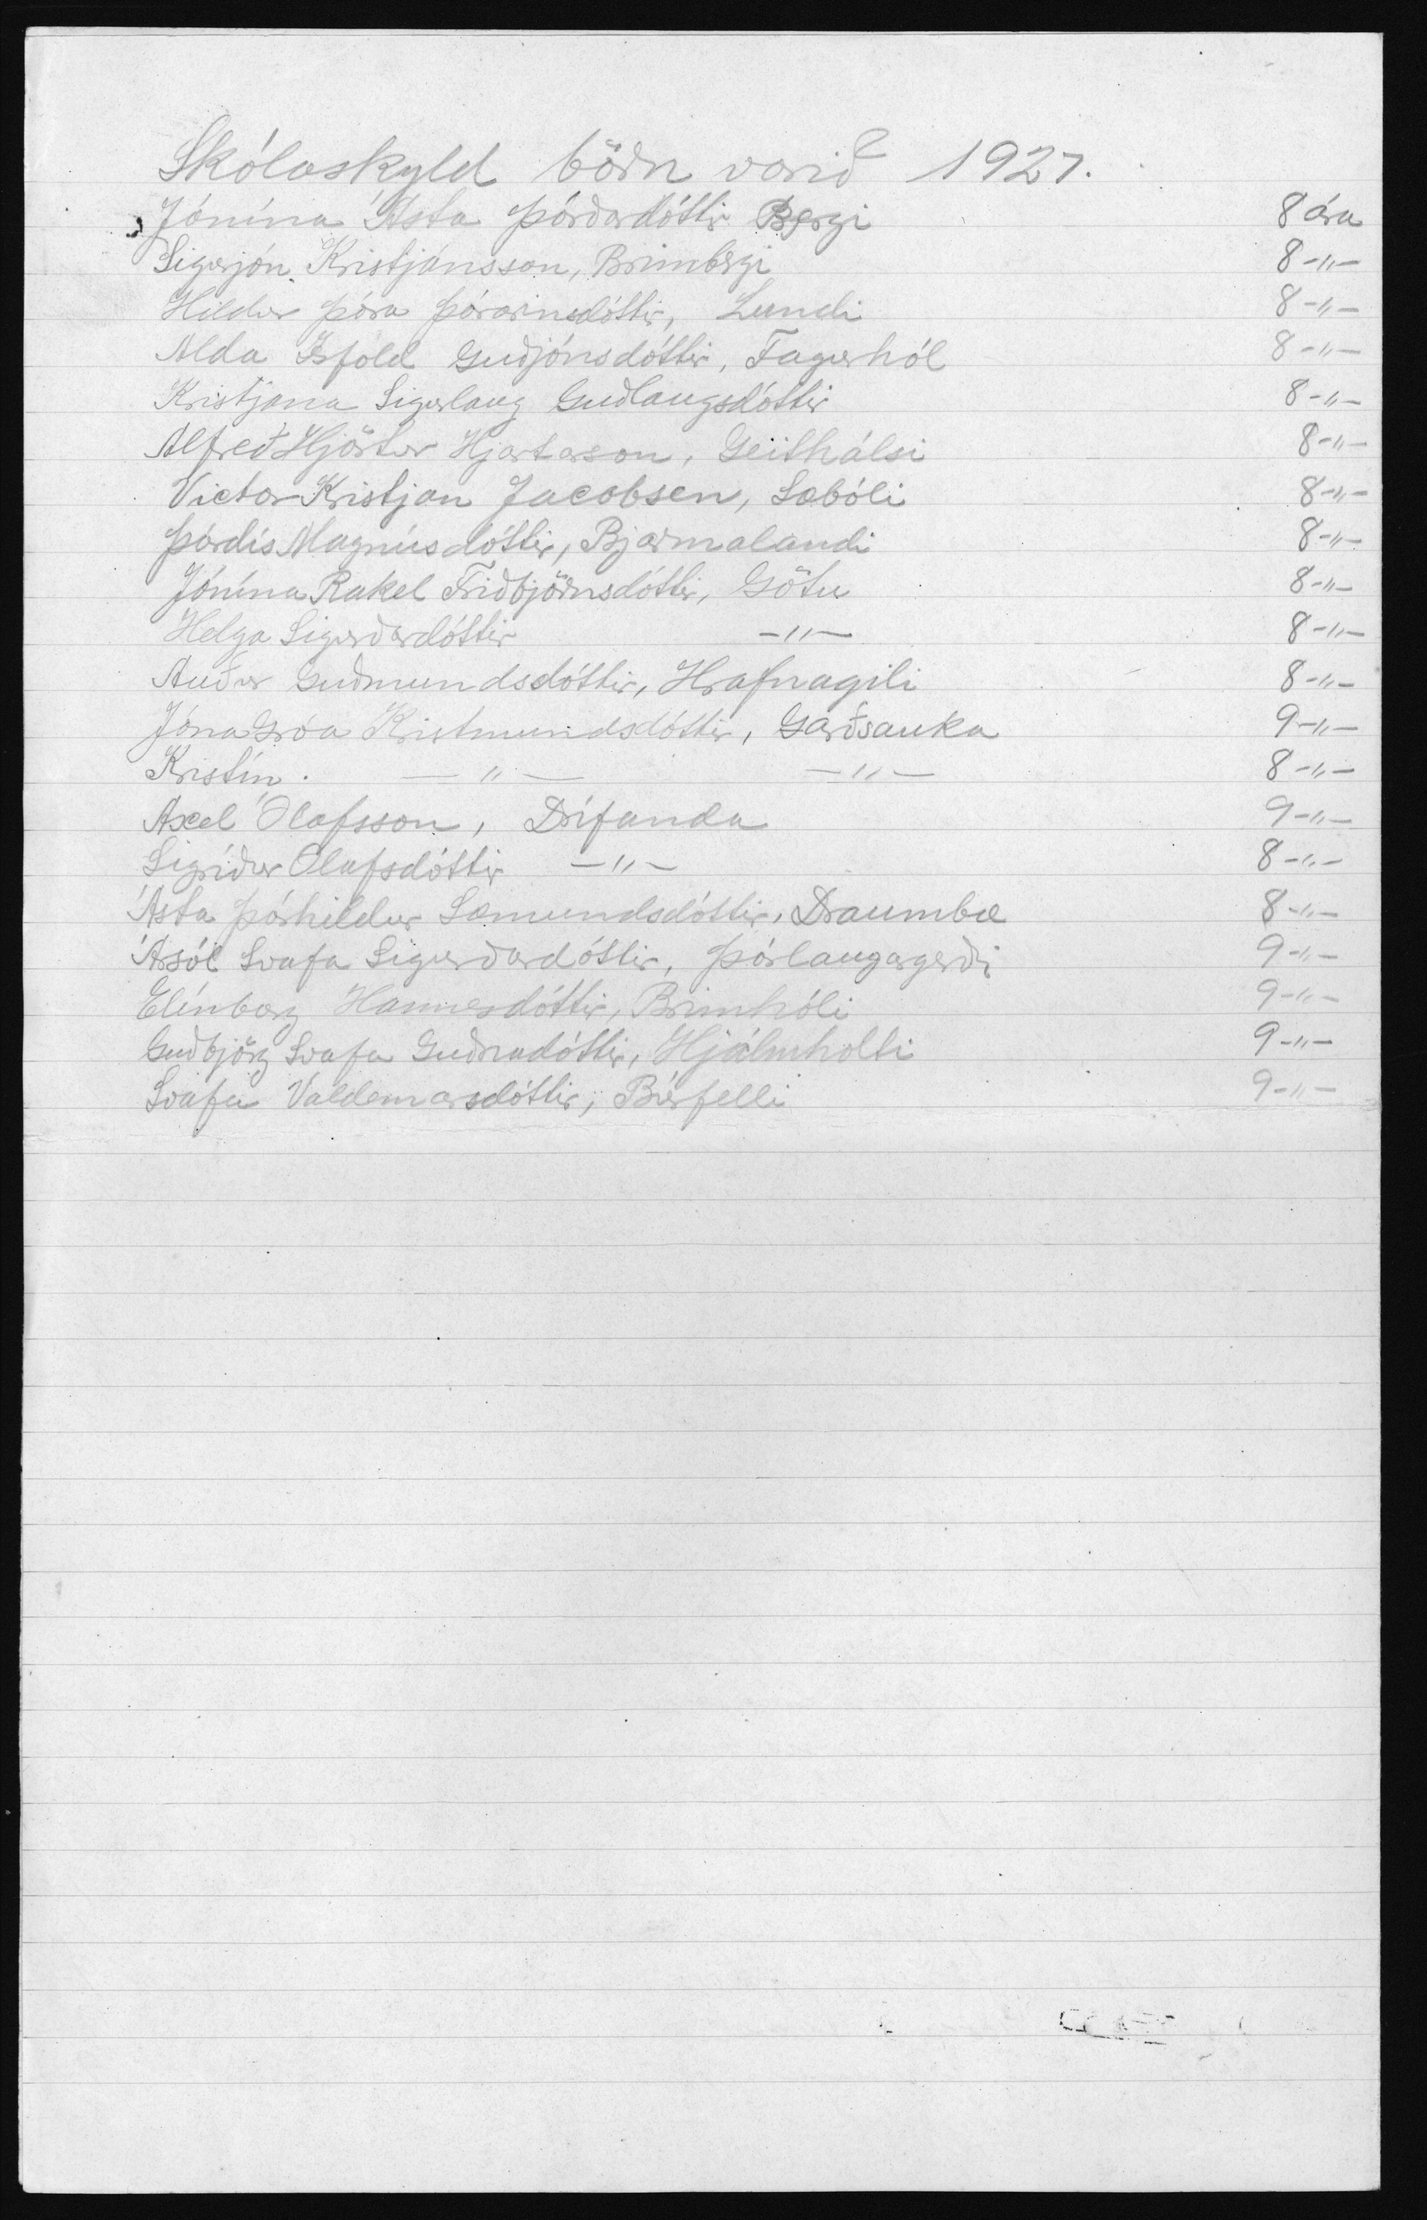 Skólaskyld börn vorið 1927.
Jónína Ásta Þórðardóttir Bergi 8 ára
Sigurjón Kristjánsson, Brimbergi 8 -"-
Hildur Þóra Þórarinsdóttir, Lundi 8 -"-
Alda Ísfold Guðjónsdóttir, Fagurhól 8 -"-
Kristjana Sigurlaug Guðlaugsdóttir 8 -"-
Alfreð Hjörtur Hjartarson, Geithálsi 8 -"-
Victor Kristjan Jacobsen, Sæbóli 8 -"-
Þórdís Magnúsdóttir, Bjarmalandi 8 -"-
Jónína Rakel Friðbjörnsdóttir, Götu 8 -"-
Helga Sigurðardóttir -"- 8 -"-
Auður Guðmundsdóttir, Hrafnagili 8 -"-
Jóna Gróa Kristmundsdóttir, Garðsauka 9 -"-
Kristín. -"- -"- 8 -"-
Axel Ólafsson, Drífanda 9 -"-
Sigríður Ólafsdóttir -"- 8 -"-
Ásta Þórhildur Sæmundsdóttir, Draumbæ 8 -"-
Ársól Svafa Sigurðardóttir, Þórlaugargerði 9 -"-
Elínborg Hannesdóttir, Brimhóli 9 -"-
Guðbjörg Svafa Guðnadóttir, Hjálmholti 9 -"-
Svafa Valdemarsdóttir, Búrfelli 9 -"-